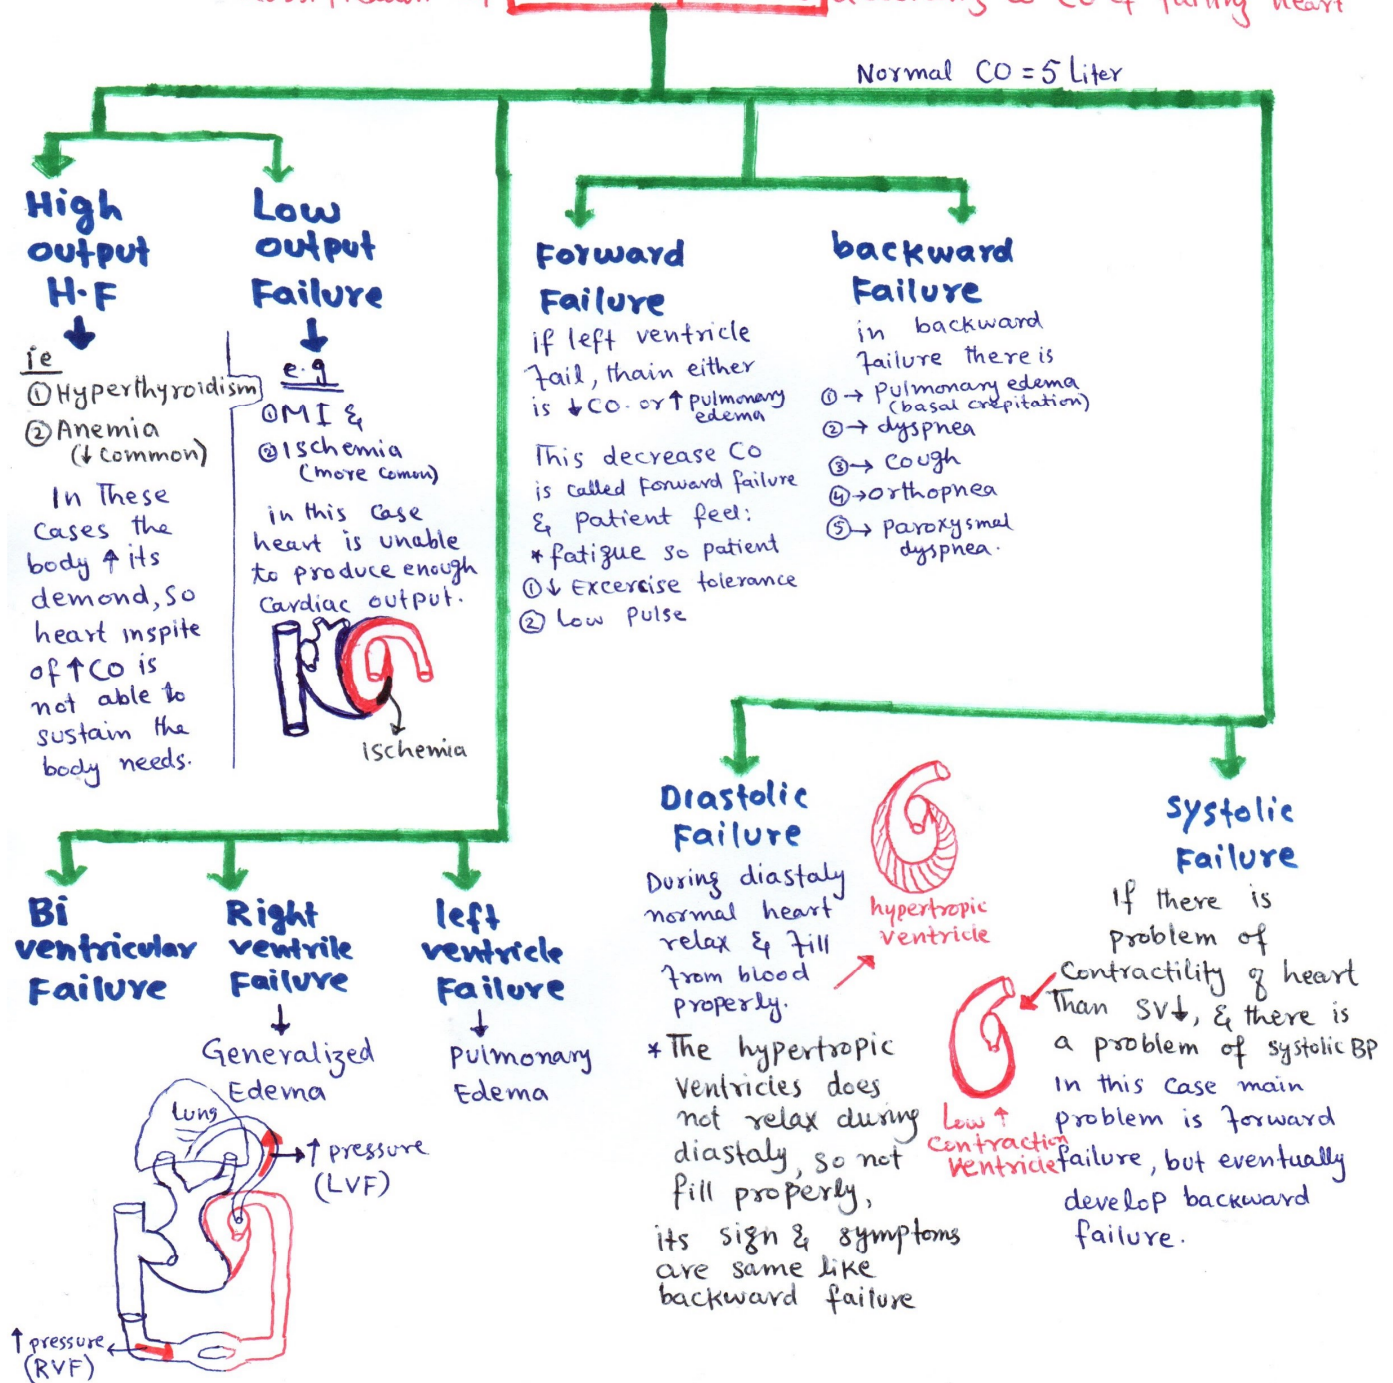 according to CO of failing heart
Normal CO = 5 Liter
High
output
H.F
ie
① Hyperthyroidism
② Anemia
(↓ common)
In These
Cases the
body ↑ its
demond, so
heart inspite
of ↑ CO is
not able to
sustain the
body needs.
Low
output
Failure
e.g
① MI &
② Ischemia
(more comon)
in this case
heart is unable
to produce enough
Cardiac output.
ischemia
Forward
Failure
if left ventricle
fail, thain either
is ↓ CO. or ↑ pulmonary
edema
This decrease CO
is called Forward failure
& patient feel:
* fatigue so patient
① ↓ Excercise tolerance
② Low pulse
backward
Failure
in backward
failure there is
① → Pulmonary edema
(basal crepitation)
② → dyspnea
③ → Cough
④ → orthopnea
⑤ → paroxysmal
dyspnea.
Bi
ventricular
Failure
Right
ventrile
Failure
Generalized
Edema
left
ventricle
Failure
pulmonary
Edema
Lung
↑ pressure
(LVF)
↑ pressure
(RVF)
Diastolic
Failure
During diastaly
normal heart
relax & fill
from blood
properly.
hypertropic
ventricle
* The hypertropic
ventricles does
not relax during
diastaly, so not
fill properly,
its sign & symptoms
are same like
backward failure
Systolic
Failure
If there is
problem of
Contractility of heart
Than SV↓, & there is
a problem of systolic BP
In this case main
problem is forward
failure, but eventually
develop backward
failure.
Low ↑
Contraction
Ventricle